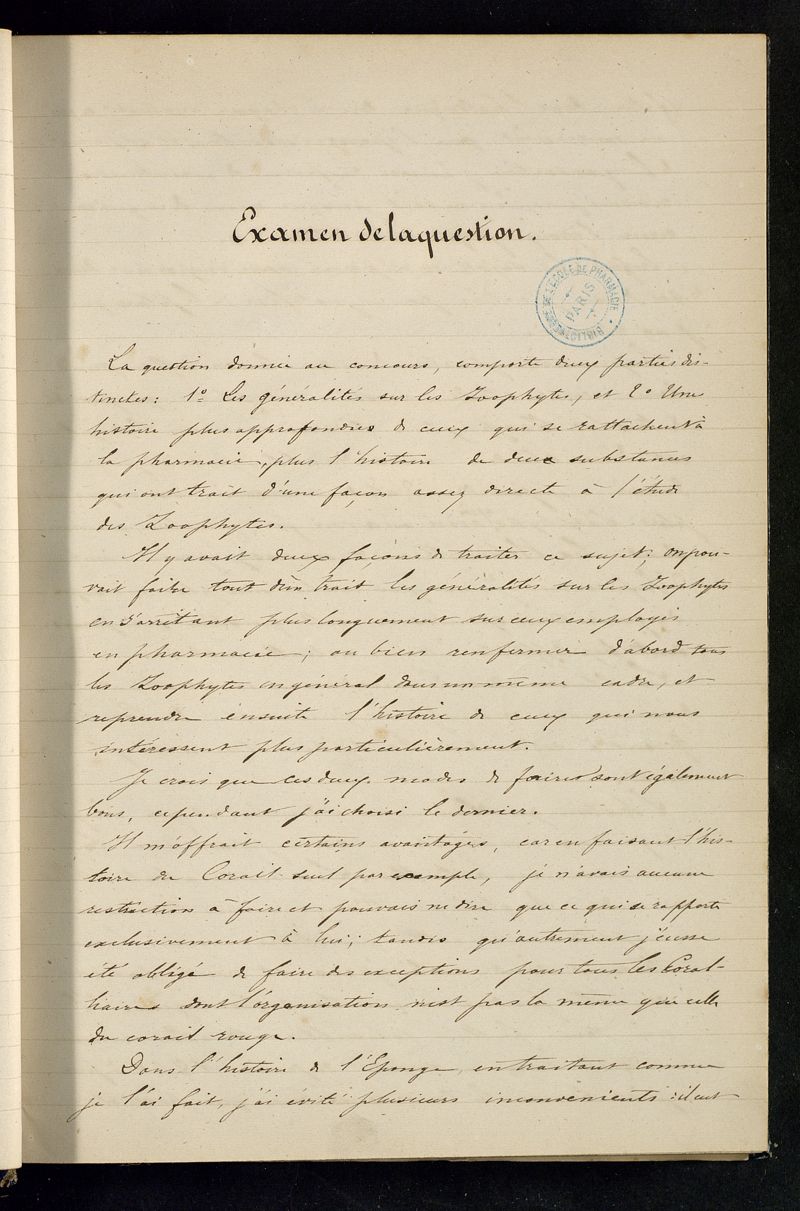 Examen de la question.
BIBLIOTHÈQUE DE L'ÉCOLE DE PHARMACIE
PARIS
La question donnée au concours, comporte deux parties dis-
tinctes: 1º Les généralités sur les Zoophytes, et 2º Une
histoire plus approfondie de ceux qui se rattachent à
la pharmacie, plus l'histoire de deux substances
qui ont trait d'une façon assez directe à l'étude
des Zoophytes.
Il y avait deux façons de traiter ce sujet; on pou-
vait faire tout d'un trait les généralités sur les Zoophytes
en s'arrêtant plus longuement sur ceux employés
en pharmacie; ou bien renfermer d'abord tous
les Zoophytes en général dans un même cadre, et
reprendre ensuite l'histoire de ceux qui nous
intéressent plus particulièrement.
Je crois que ces deux modes de faire sont également
bons, cependant j'ai choisi le dernier.
Il m'offrait certains avantages, car en faisant l'his-
toire du Corail seul par exemple, je n'avais aucune
restriction à faire et pouvais ne dire que ce qui se rapporte
exclusivement à lui; tandis qu'autrement j'eusse
été obligé de faire des exceptions pour tous les Coral-
liaires dont l'organisation n'est pas la même que celle
du corail rouge.
Dans l'histoire de l'Eponge, en traitant comme
je l'ai fait, j'ai évité plusieurs inconvenients: il eut